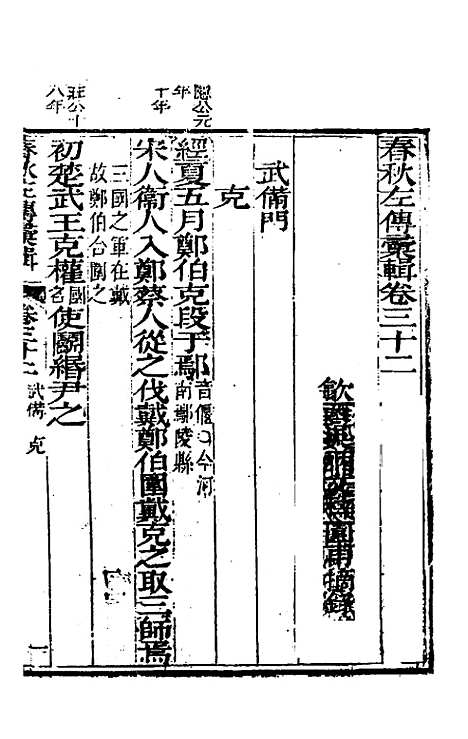 春秋左傳彙輯卷三十二
武備門
克
隱公元年
經夏五月鄭伯克段于鄢音偃〇今河南鄢陵縣
十年
宋人衞人入鄭蔡人從之伐戴鄭伯圍戴克之取三師焉
三國之軍在戴故鄭伯合圍之
莊公十八年
初楚武王克權國名使鬭緡尹之
春秋左傳彙輯 卷三十二 武備 克 一